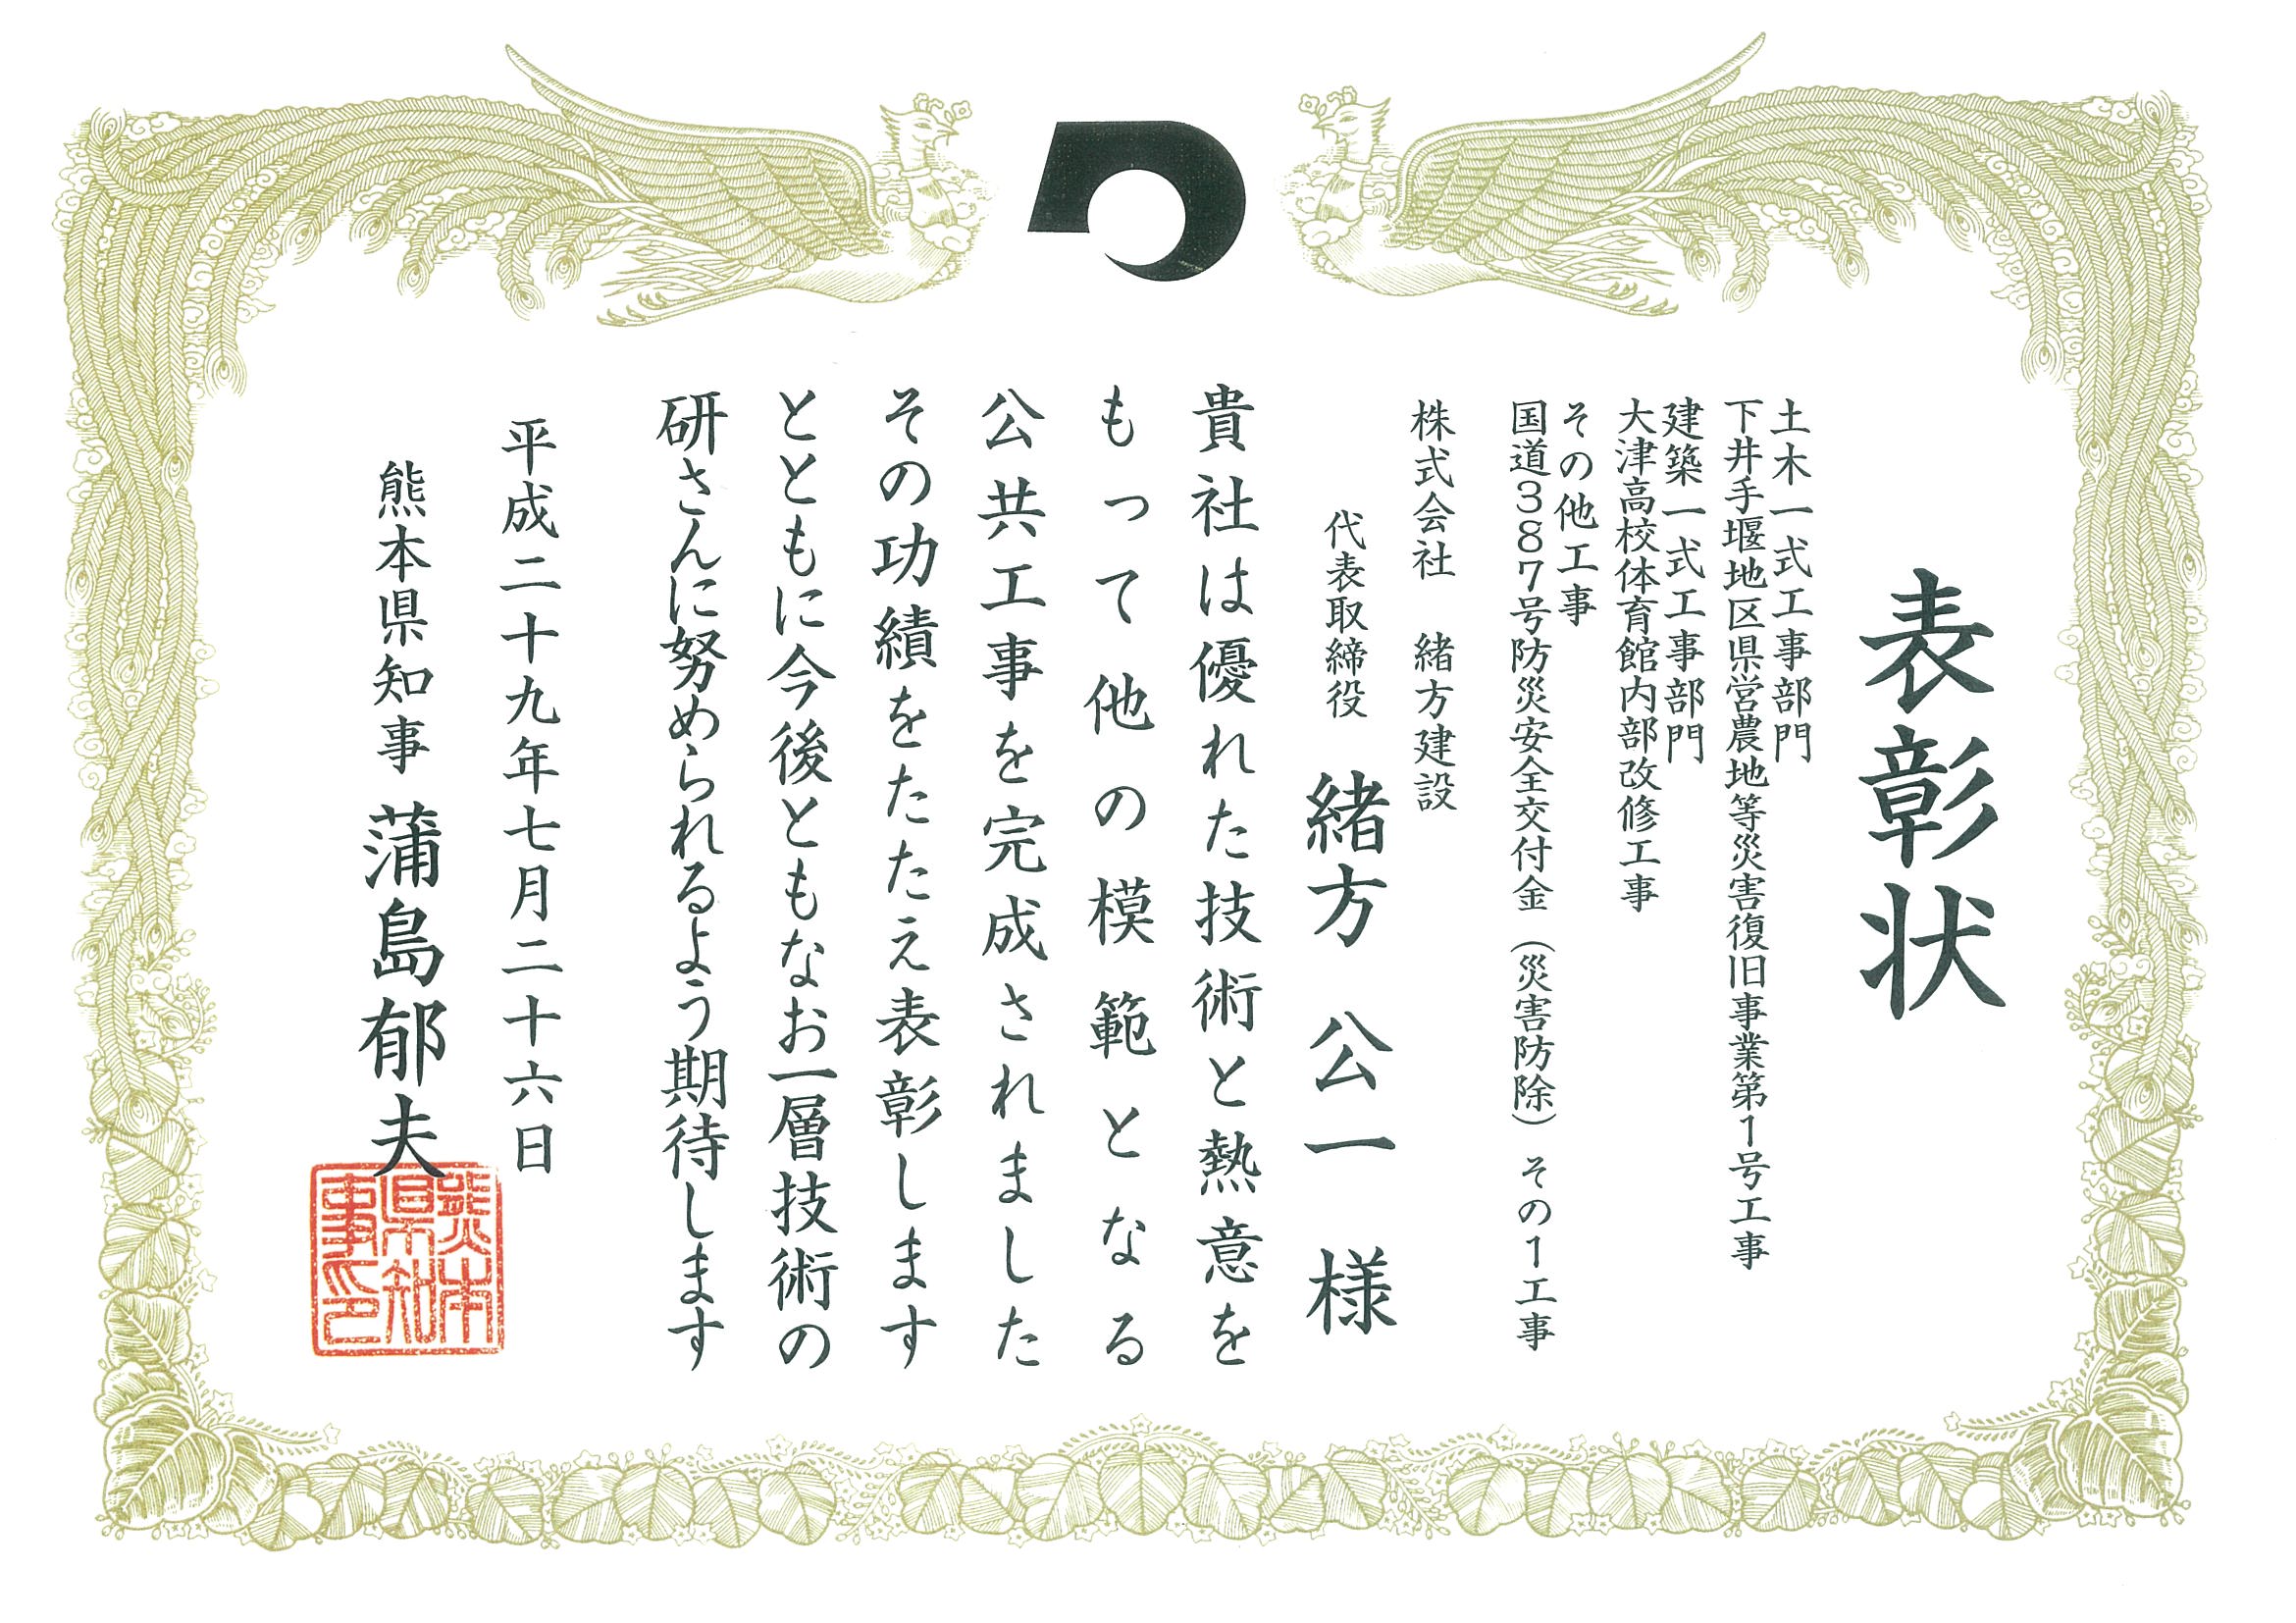 表彰状
土木一式工事部門
下井手堰地区県営農地等災害復旧事業第1号工事
建築一式工事部門
大津高校体育館内部改修工事
その他工事
国道387号防災安全交付金（災害防除）その1工事
株式会社 緒方建設
代表取締役 緒方 公一 様
貴社は優れた技術と熱意を
もって他の模範となる
公共工事を完成されました
その功績をたたえ表彰します
とともに今後ともなお一層技術の
研さんに努められるよう期待します
平成二十九年七月二十六日
熊本県知事 蒲島郁夫
熊本県知事印